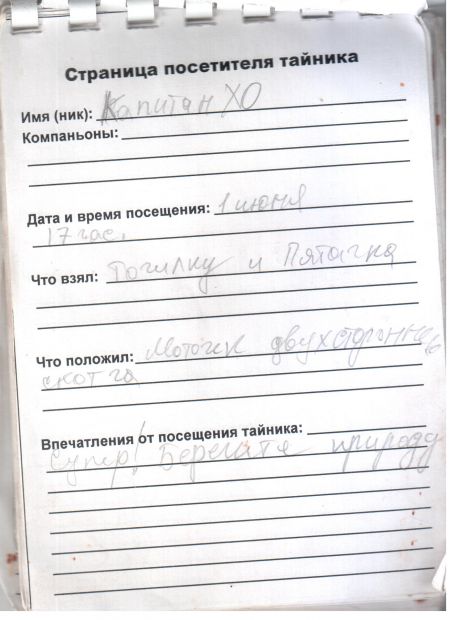 Страница посетителя тайника
Имя (ник): Капитан ХО
Компаньоны:
Дата и время посещения: 1 июня
17 час.
Что взял: Точилку и Пятачка
Что положил: Моточек двухсторонне
скотча
Впечатления от посещения тайника:
Супер! Берегите природу